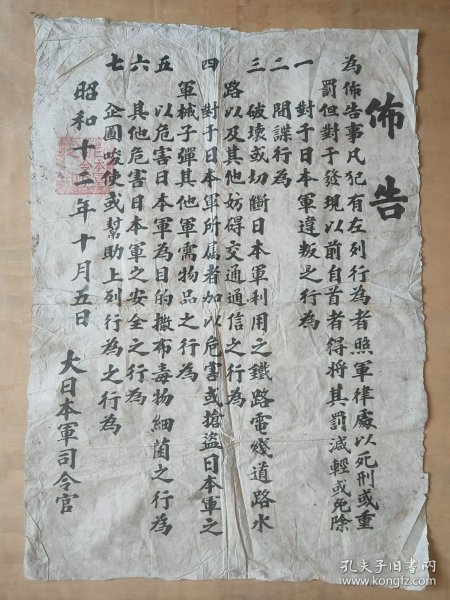 佈告
為佈告事凡犯有左列行為者照軍律處以死刑或重
罰但對于發現以前自首者得將其罰減輕或免除
一 對于日本軍違叛之行為
二 間諜行為
三 破壞或切斷日本軍利用之鐵路電綫道路水
路以及其他妨碍交通通信之行為
四 對于日本軍所屬者加以危害或搶盜日本軍之
軍械子彈其他軍需物品之行為
五 以危害日本軍為目的撒布毒物細菌之行為
六 其他危害日本軍之安全之行為
七 企圖唆使或幫助上列行為之行為
昭和十二年十月五日 大日本軍司令官
孔夫子旧书网
www.kongfz.com